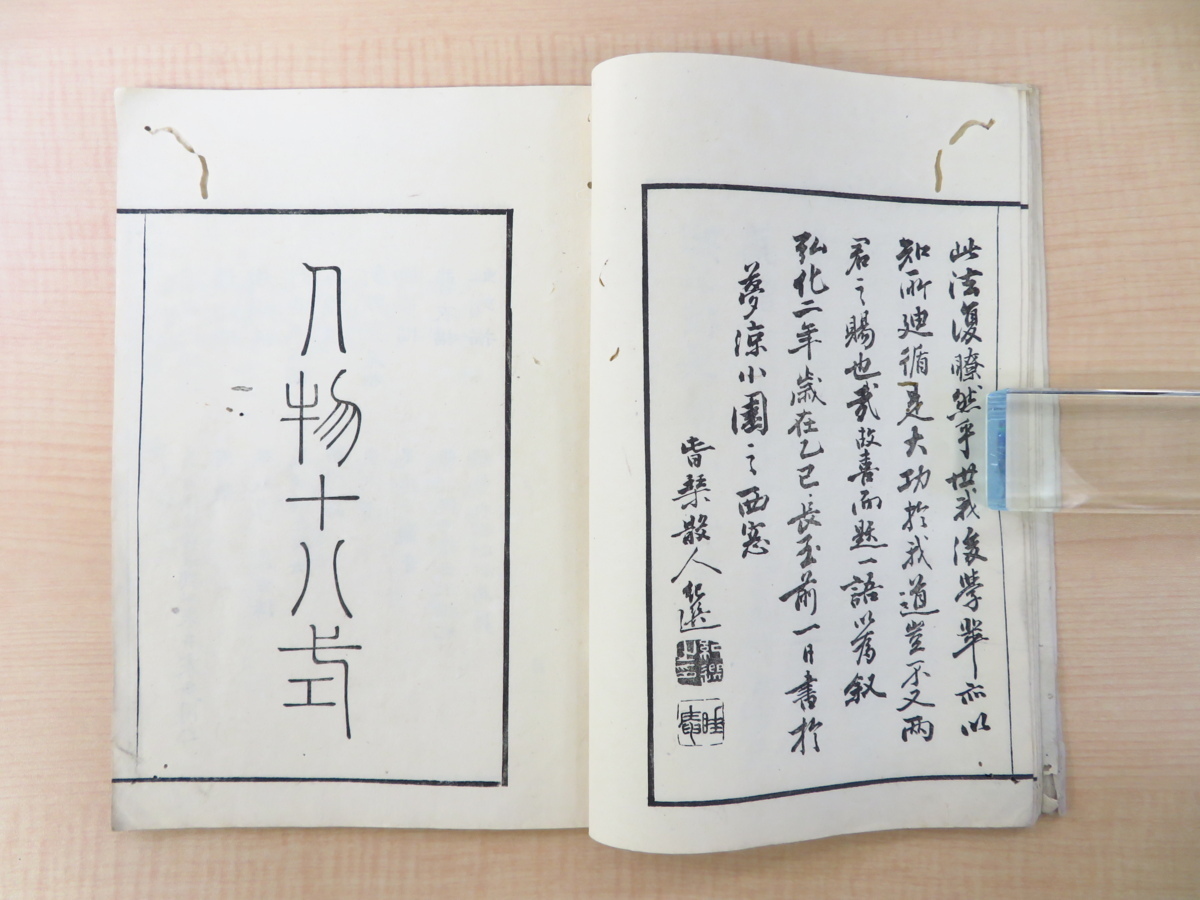 此法復瞭然乎世我後学輩亦以
知所廸循是大功於我道豈不又両
君之賜也哉故喜而題一語以為叙
弘化二年歳在乙巳長至前一日書於
夢涼小園之西窓
散人
人物十八式